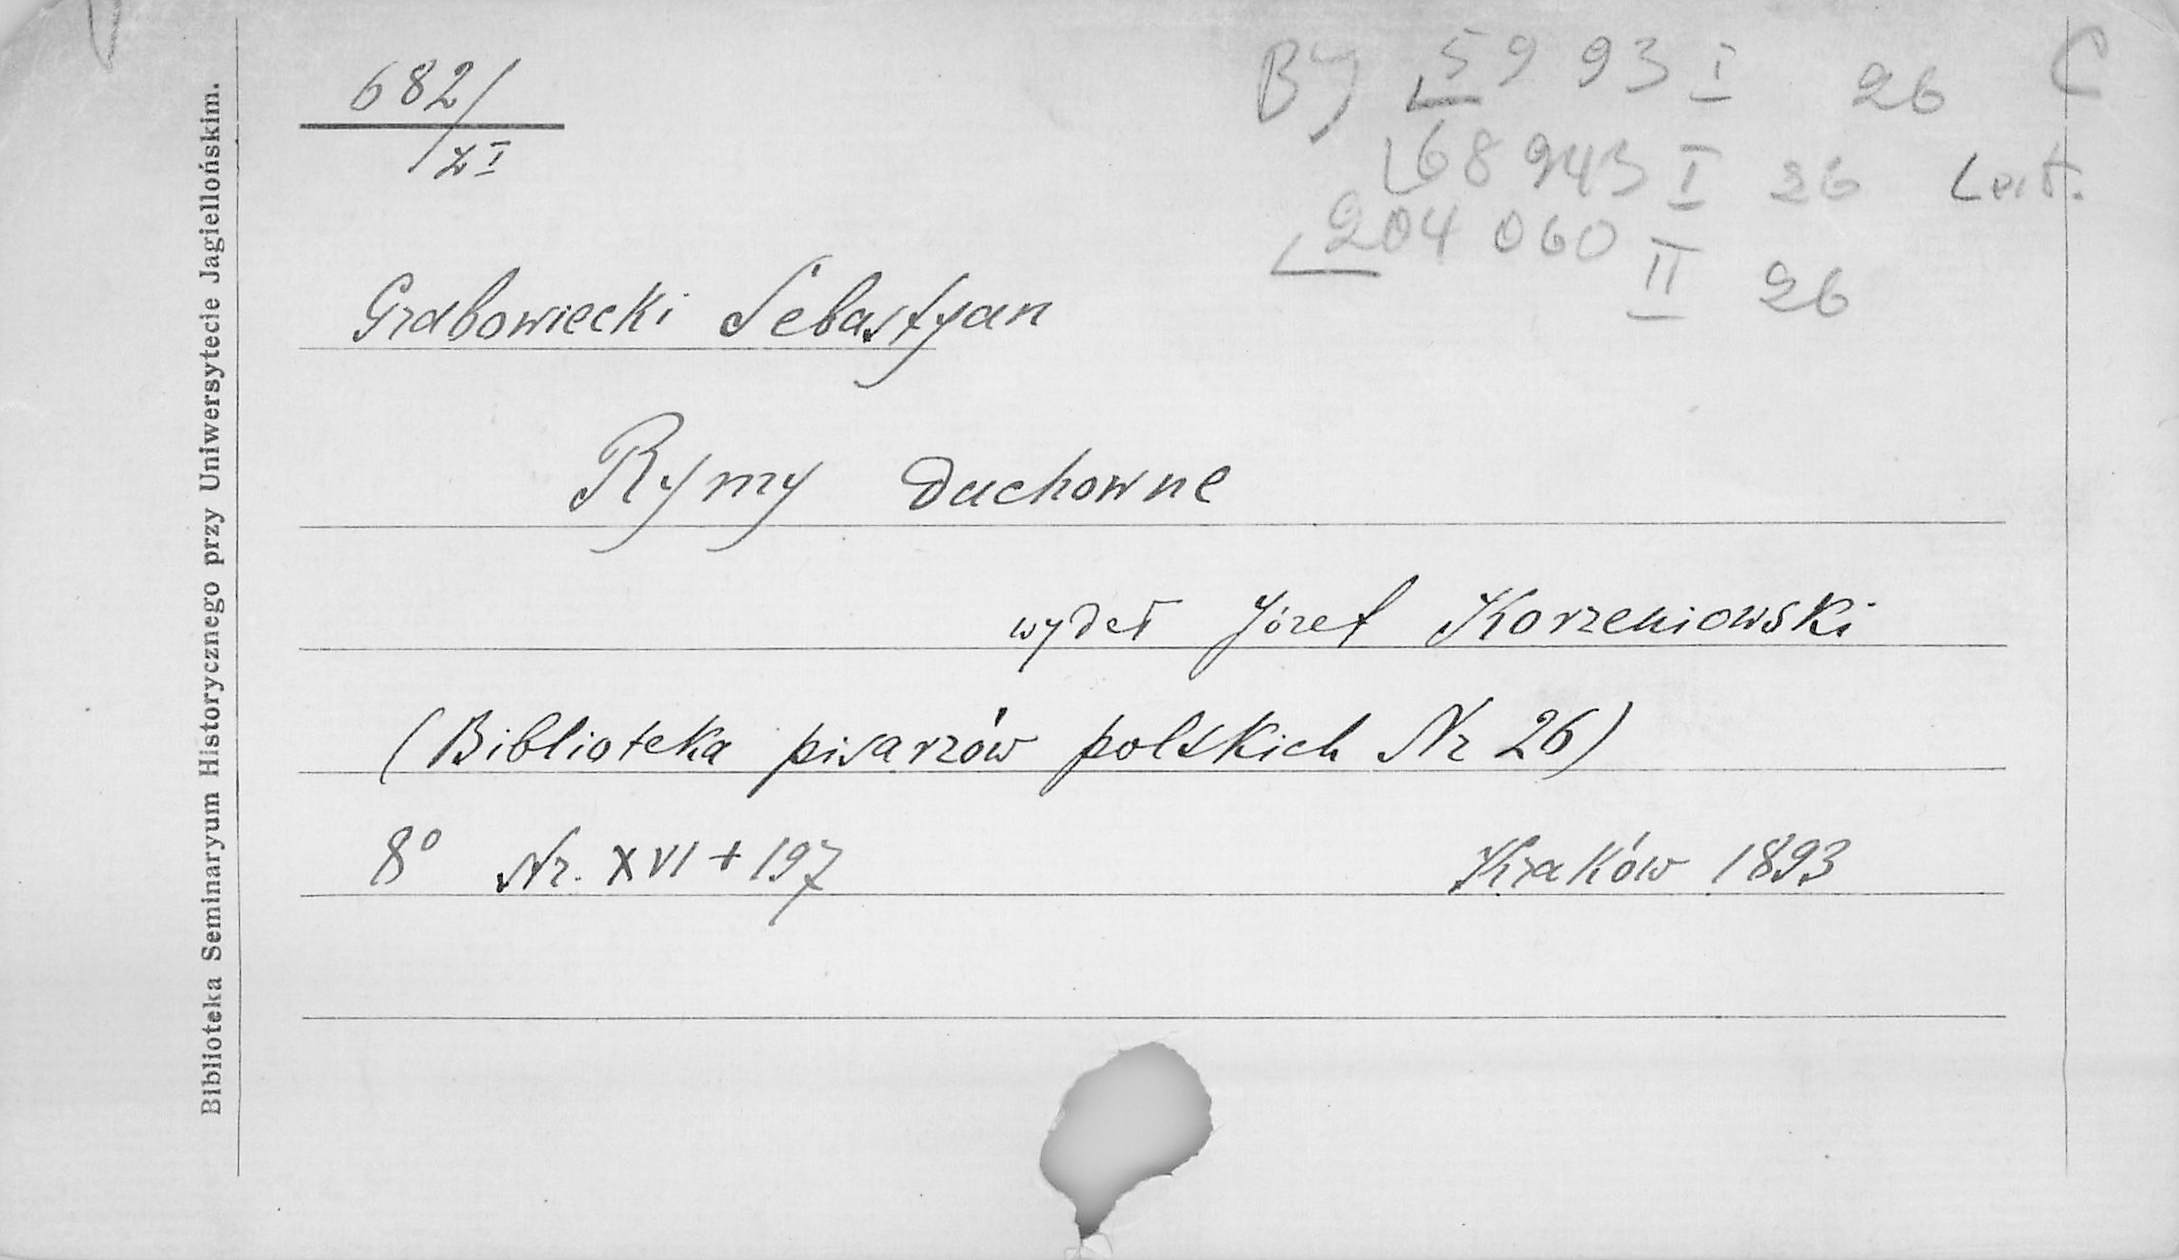 682/
ZI
BJ 5993 I 26 C
68943 I 26 Lect.
204060 II 26
Grabowiecki Sebastyan
Rymy duchowne
wydał Józef Korzeniowski
(Biblioteka pisarzów polskich Nr 26)
8° Nr. XVI + 197 Kraków 1893
Biblioteka Seminaryum Historycznego przy Uniwersytecie Jagiellońskim.